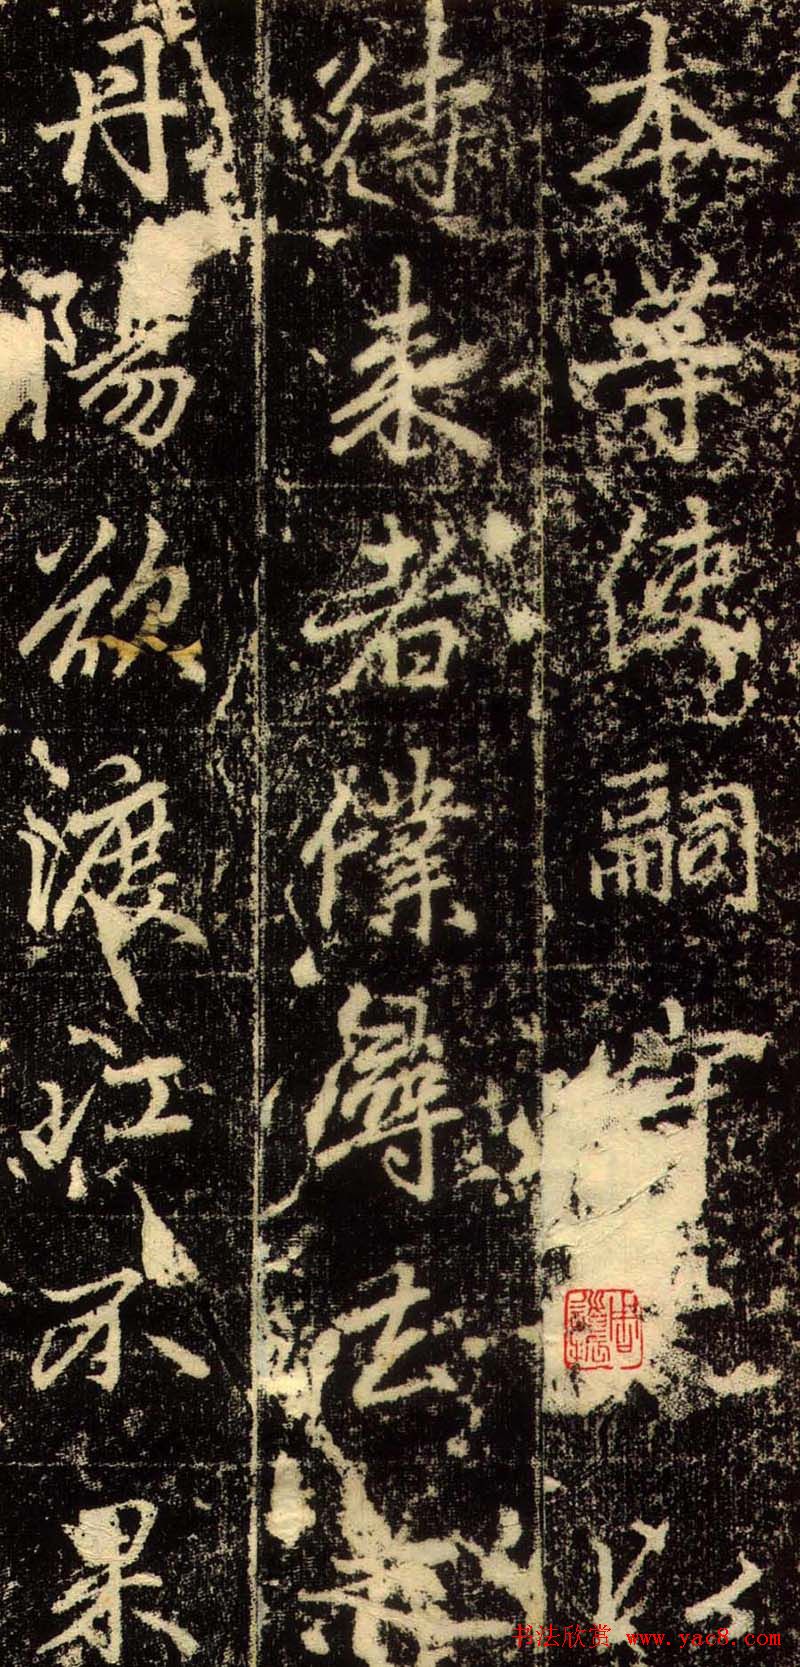 本等使嗣守
待来者僕尋去
丹陽欲渡江不果
书法欣赏 www.yac8.com